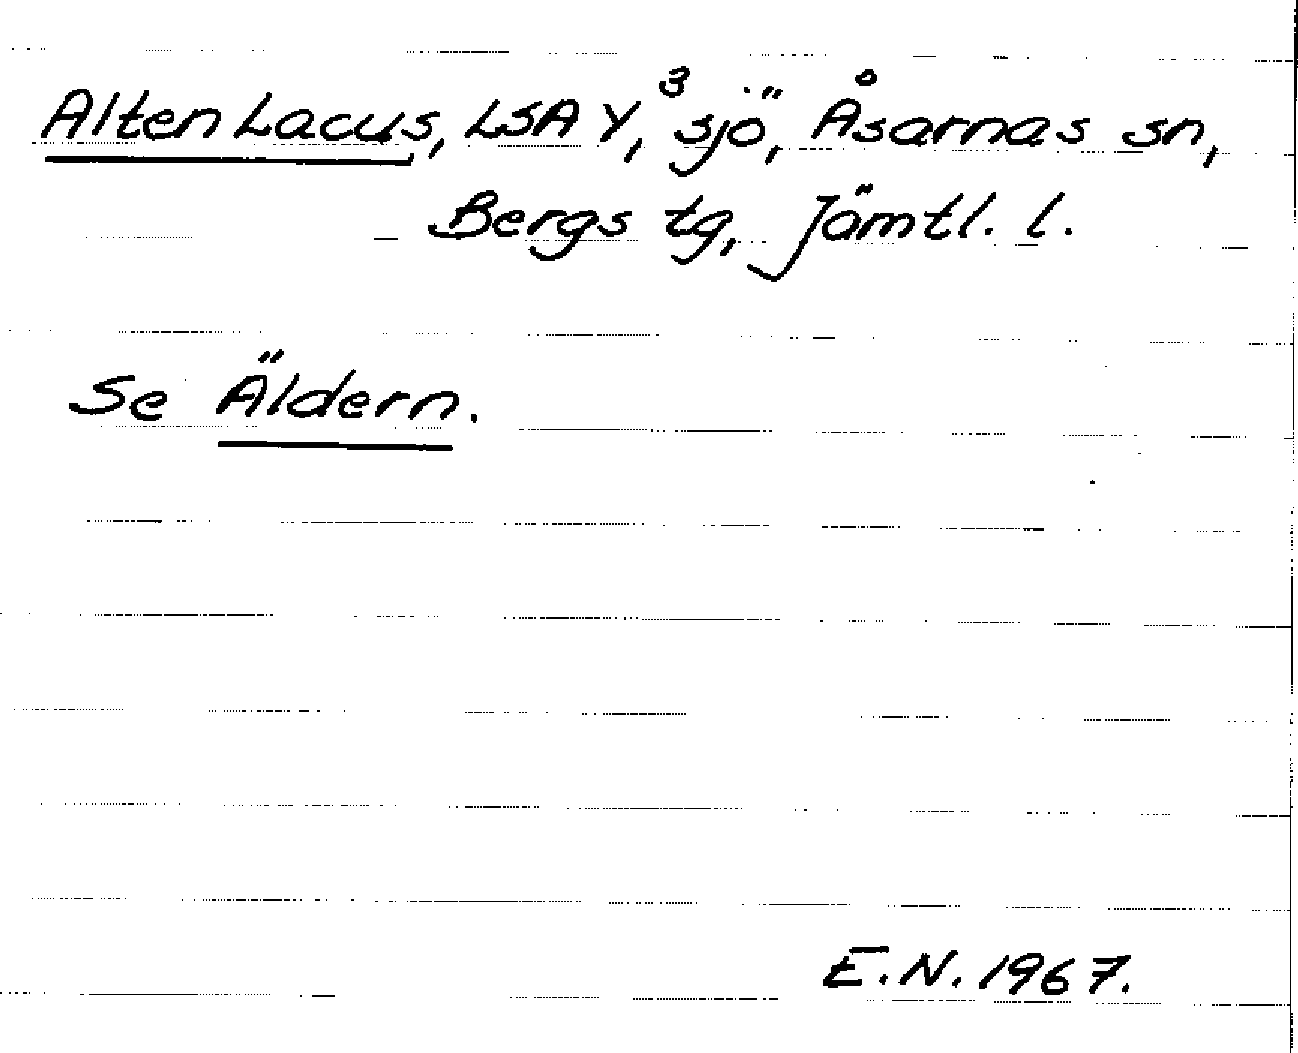 Alten Lacus, LSA Y, ³ sjö, Åsarnas sn,
Bergs tg, Jämtl. l.
Se Äldern.
E.N. 1967.